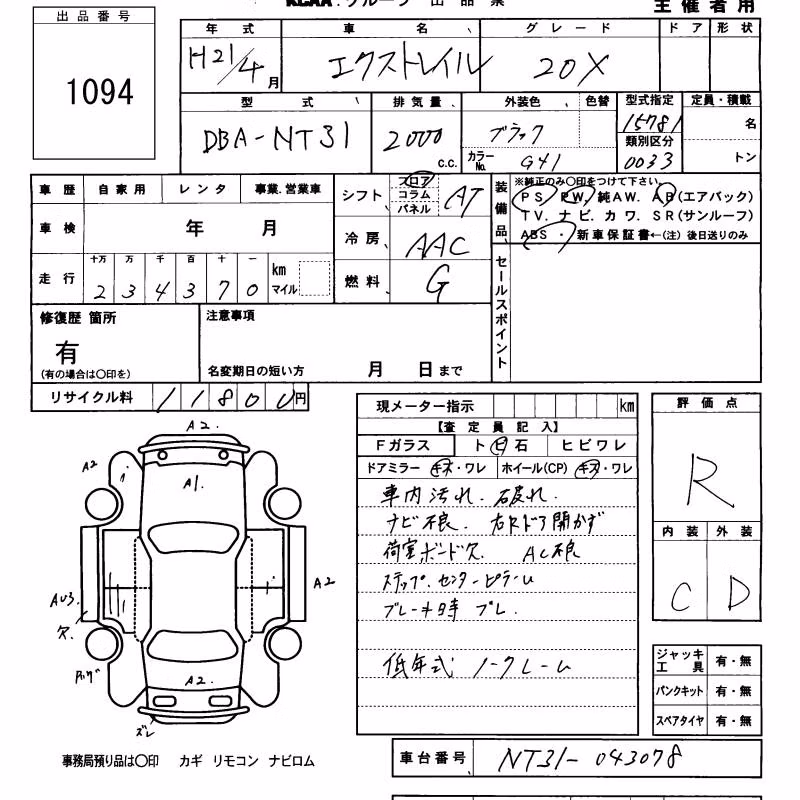 KCAA.グループ 出品票
主催者用
出品番号
1094
年式 車名 グレード ドア 形状
H21/4月 エクストレイル 20X
型式 排気量 外装色 色替 型式指定 定員・積載
DBA-NT31 2000 c.c. ブラック 15781 名
カラーNo. G41 類別区分 0033 トン
車歴 自家用 レンタ 事業.営業車
車検 年 月
走行 十万 万 千 百 十 一 km マイル
2 3 4 3 7 0
シフト フロア コラム パネル AT
冷房 AAC
燃料 G
装備品 ※純正のみ〇印をつけて下さい。
PS. PW. 純AW. AB(エアバック)
TV. ナビ. カワ. SR(サンルーフ)
ABS ・ 新車保証書←(注)後日送りのみ
セールスポイント
修復歴 箇所
有
(有の場合は〇印を)
注意事項
名変期日の短い方 月 日まで
リサイクル料 11800円
現メーター指示 km
【査定員記入】
Fガラス ト ビ 石 ヒビワレ
ドアミラー キズ・ワレ ホイール(CP) キズ・ワレ
車内汚れ. 破れ.
ナビ不良. 右Rドア開かず
荷室ボード欠 AC不良
ステップ. センターピラーU
ブレーキ時 ブレ.
低年式 ノークレーム
評価点
R
内装 外装
C D
ジャッキ工具 有・無
パンクキット 有・無
スペアタイヤ 有・無
A2.
A2
A1.
AU3.
欠.
A2
A2.
ズレ
事務局預り品は〇印 カギ リモコン ナビロム
車台番号 NT31-043078